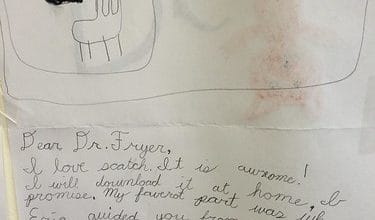 Dear Dr. Fryer,
I love scatch. It is awxome!
I will download it at home, I
promise. My favorit part was wh
Eric guided you from